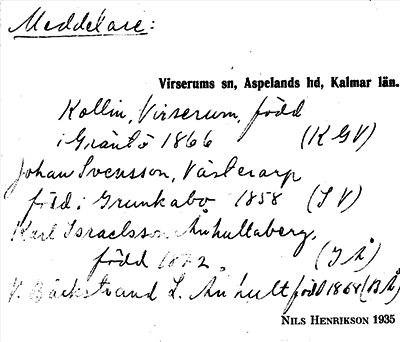 Meddelare:
Virserums sn, Aspelands hd, Kalmar län.
Kollin, Virserum, född
i Gräntö 1866 (K G V)
Johan Svensson, Västerarp
född i Grunkabo 1858 (J V)
Karl Israelsson Änhultaberg,
född 1872 (J Å)
V. Bäckstrand L. Änhult född 1864 (B Å)
NILS HENRIKSON 1935